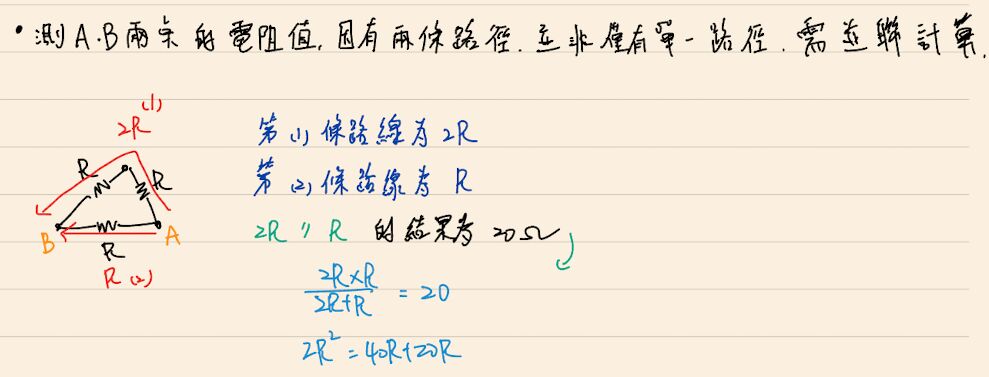 • 測A.B兩端的電阻值, 因有兩條路徑. 並非僅有單一路徑. 需並聯計算.
(1)
2R
R
R
B
A
R
R (2)
第(1)條路線為2R
第(2)條路線為 R
2R // R 的結果為 20Ω
2R×R
2R+R
= 20
2R² = 40R+20R